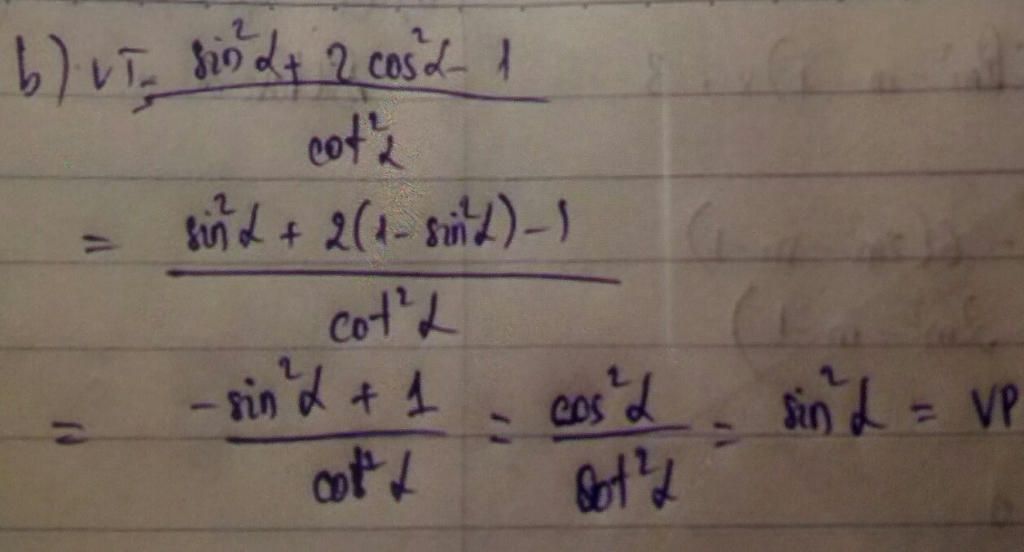 b) VT = \frac{sin²α + 2cos²α - 1}{cot²α}
= \frac{sin²α + 2(1 - sin²α) - 1}{cot²α}
= \frac{-sin²α + 1}{cot²α} = \frac{cos²α}{cot²α} = sin²α = VP